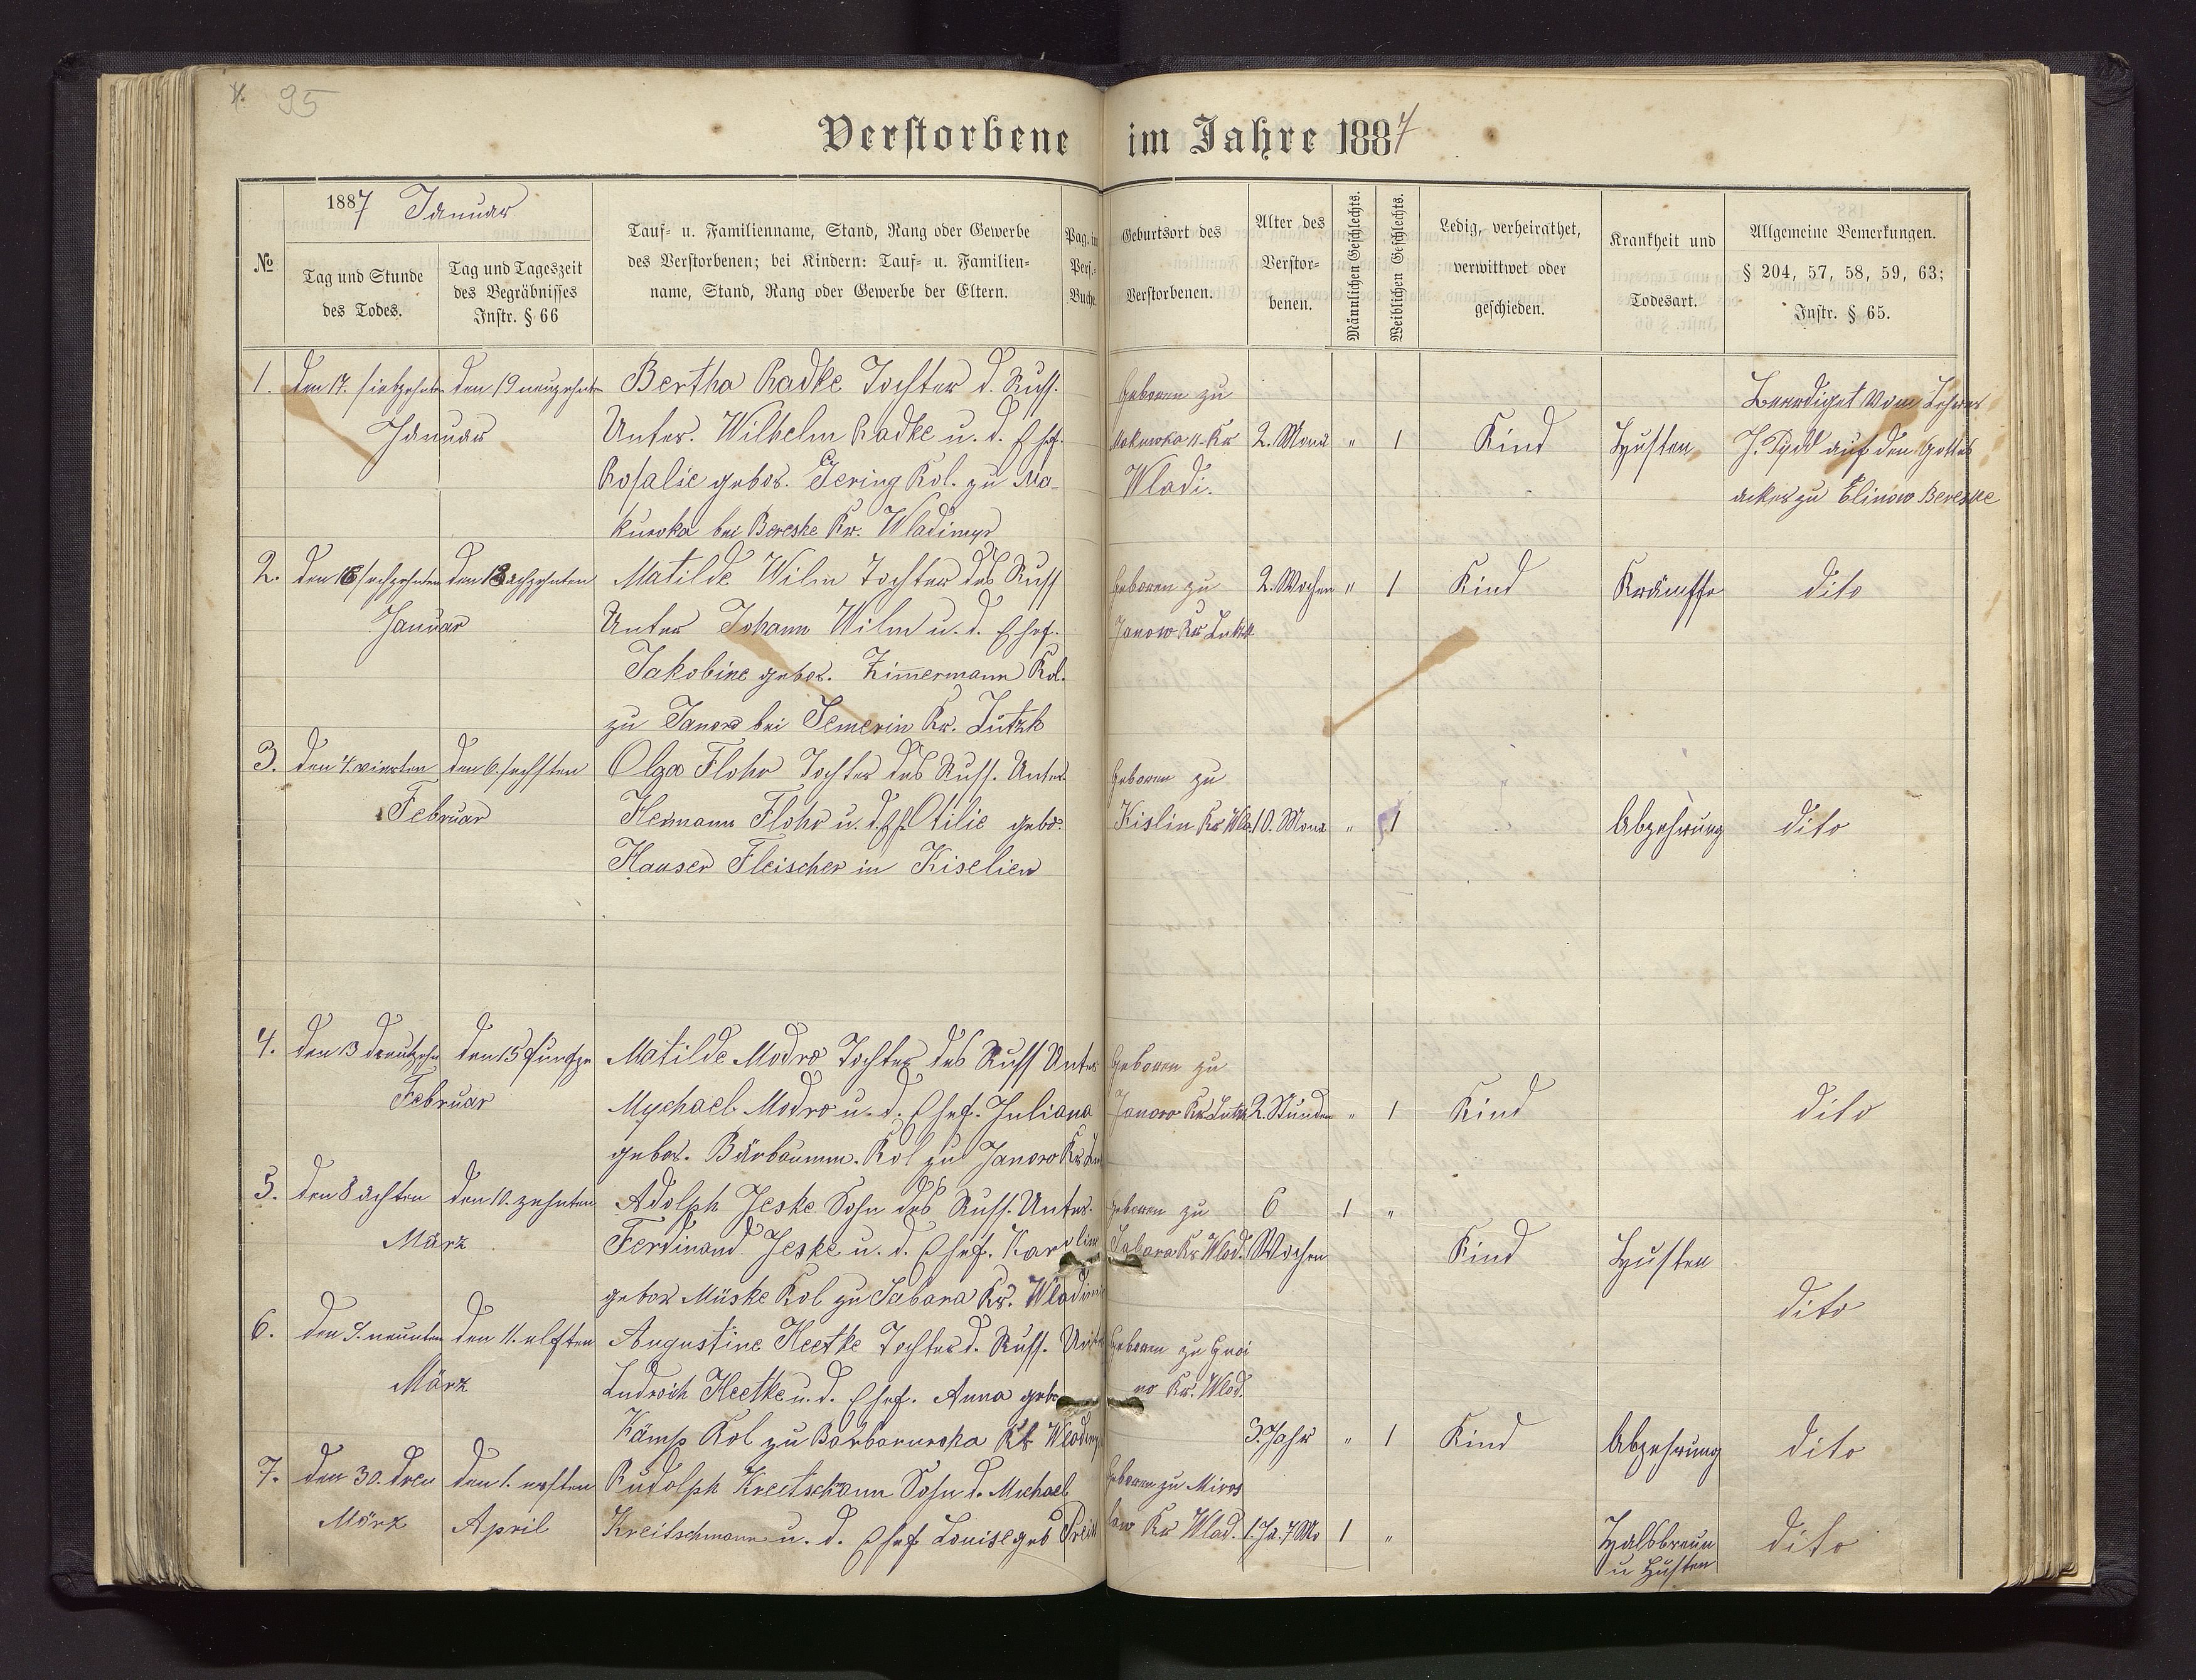 95
Verstorbene im Jahre 1887
№
1887 Januar
Tag und Stunde
des Todes.
Tag und Tageszeit
des Begräbnisses
Instr. § 66
Tauf- u. Familienname, Stand, Rang oder Gewerbe
des Verstorbenen; bei Kindern: Tauf- u. Familien-
name, Stand, Rang oder Gewerbe der Eltern.
Pag. im
Pers.-
Buche.
Geburtsort des
Verstorbenen.
Alter des
Verstor-
benen.
Männlichen Geschlechts.
Weiblichen Geschlechts.
Ledig, verheirathet,
verwittwet oder
geschieden.
Krankheit und
Todesart.
Allgemeine Bemerkungen.
§ 204, 57, 58, 59, 63;
Instr. § 65.
1.
den 17. siebzehnten
Januar
den 19 neunzehnten
Bertha Radke Tochter d. Russ.
Unter. Wilhelm Radke u. d. Ehef.
Rosalie gebor. Jering Kol. zu Ma-
kuwka bei Bereske Kr. Wladimyr
Geboren zu
Kr
Wladi.
2. Mona
"
1
Kind
Husten
Beerdiget vom Lehrer
auf den Gottes
acker zu Elinow Bereske
2.
den 16 sechzehnten
Januar
den 18 achzehnten
Matilde Wilm Tochter des Russ
Unter Johann Wilm u. d. Ehef.
Jakobine gebor. Zimmermann Kol.
zu Janow bei Semerin Kr. Lutzk
Geboren zu
Janow Kr Lutzk
2. Wochen
"
1
Kind
Krämpfe
dito
3.
den 4. vierten
Februar
den 6. sechsten
Olga Flohr Tochter des Russ. Unter
Hermann Flohr u. d. Ehf. Otilie gebor.
Hauser Fleischer in Kiselien
Geboren zu
Kislin Kr Wla.
10. Mona
"
1
Abzehrung
dito
4.
den 13 dreutzehn
Februar
den 15 funfze
Matilde Modro Tochter des Russ Unter
Mychael Modro u. d. Ehef. Juliana
gebor. Bärbaumm. Kol zu Janow Kr Lu
Geboren zu
Janow Kr Lutzk
2. Stunden
"
1
Kind
dito
5.
den 8 achten
März
den 10. zehnten
Adolph Jeske Sohn des Russ. Unter.
Ferdinand Jeske u. d. Ehef. Karolin
gebor Müske Kol zu Sabara Kr. Wladimir
geboren zu
Sabara Kr Wlad.
6
Wochen
1
"
Kind
Husten
dito
6.
den 9. neunten
März
den 11. elften
Augustine Heetke Tochter d. Russ. Unter
Ludwich Heetke u. d. Ehef. Anna gebo
Kämp Kol zu Barbaruwka Kr Wladimyr
Geboren zu Gnoi
no Kr. Wlod.
3. Jahr
"
1
Kind
Abzehrung
dito
7.
den 30. dreu
März
den 1. ersten
April
Rudolph Kreitschmann Sohn d. Michael
Kreitschmann u. d. Ehef Louise geb
Geboren zu Miros
law Kr Wlad.
1. Ja. 7 Mo
1
"
Halsbreun
u Husten
dito